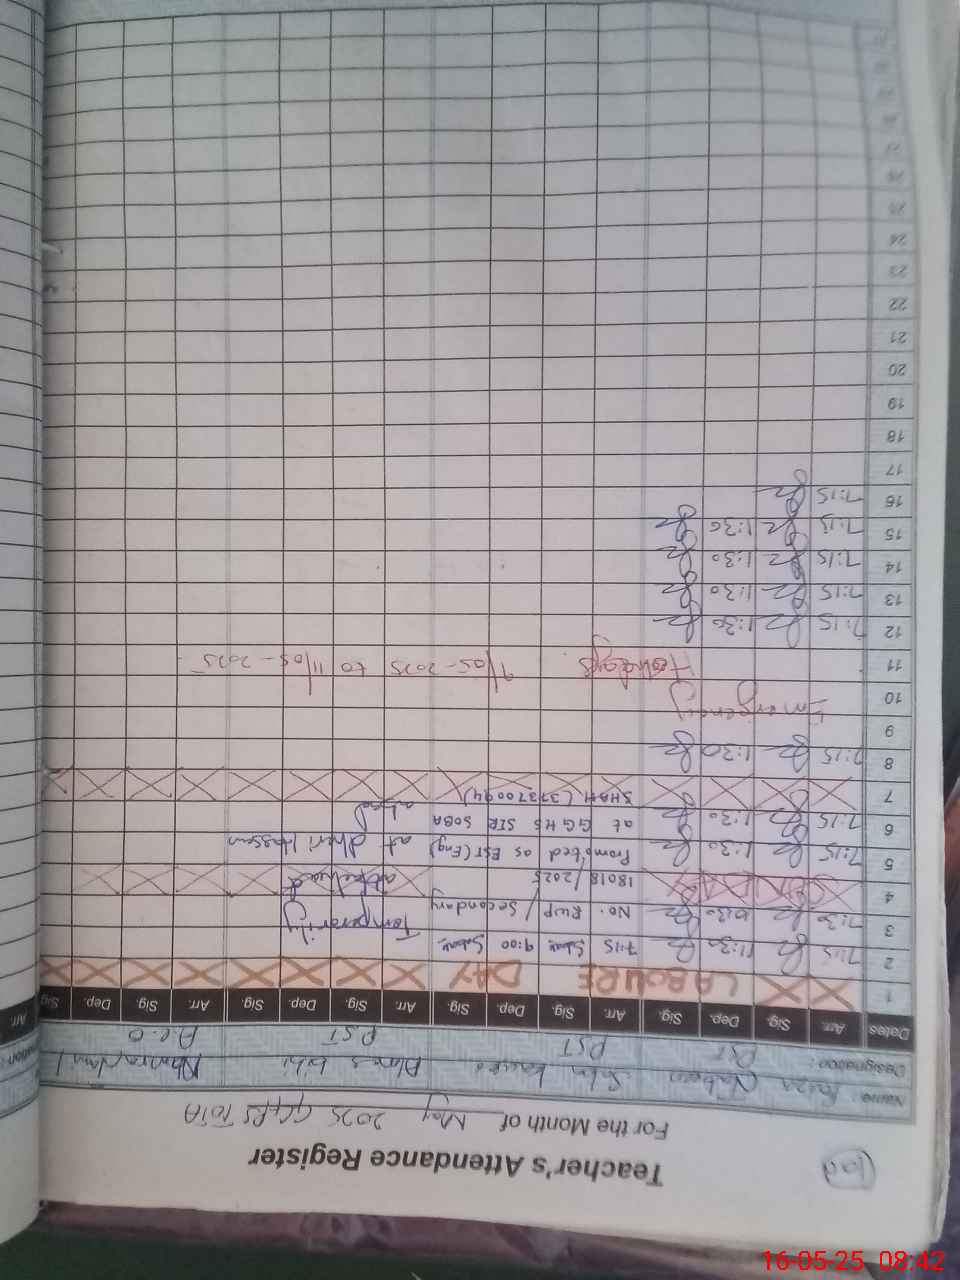 Teacher's Attendance Register
For the Month of May 2025 GGPS TOTA
Name:
Designation: PST PST PST
Dates Arr. Sig. Dep. Sig. Arr. Sig. Dep. Sig. Arr. Sig. Dep. Sig. Arr. Sig. Dep. Sig. Arr.
1 LABOURE DAY
2 7:15 11:30 7:15 9:00
3 7:30 No. RWP/Secondary Temperarily
4 18018/2025 attached
5 7:15 1:30 Promoted as EST(Eng) at dheri Hassan
6 7:15 1:30 at GGHS SIR SOBA abad
7 SHAH (37370094)
8 7:15 1:30
9
10 Emergency
11 Holidays. 9/05-2025 to 11/05-2025
12 7:15 1:30
13 7:15 1:30
14 7:15 1:30
15 7:15 1:30
16 7:15
17
18
19
20
21
22
23
24
25
26
27
16-05-25 08:42